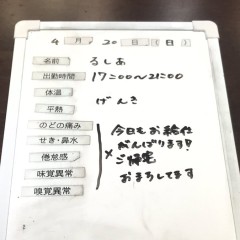 4 月, 20 日 (日)
名前 るしあ
出勤時間 17:00〜21:00
体温
平熱 げんき
のどの痛み
せき・鼻水
倦怠感
味覚異常
嗅覚異常
×
今日もお給仕
がんばります!
ご帰宅
おまちしてます